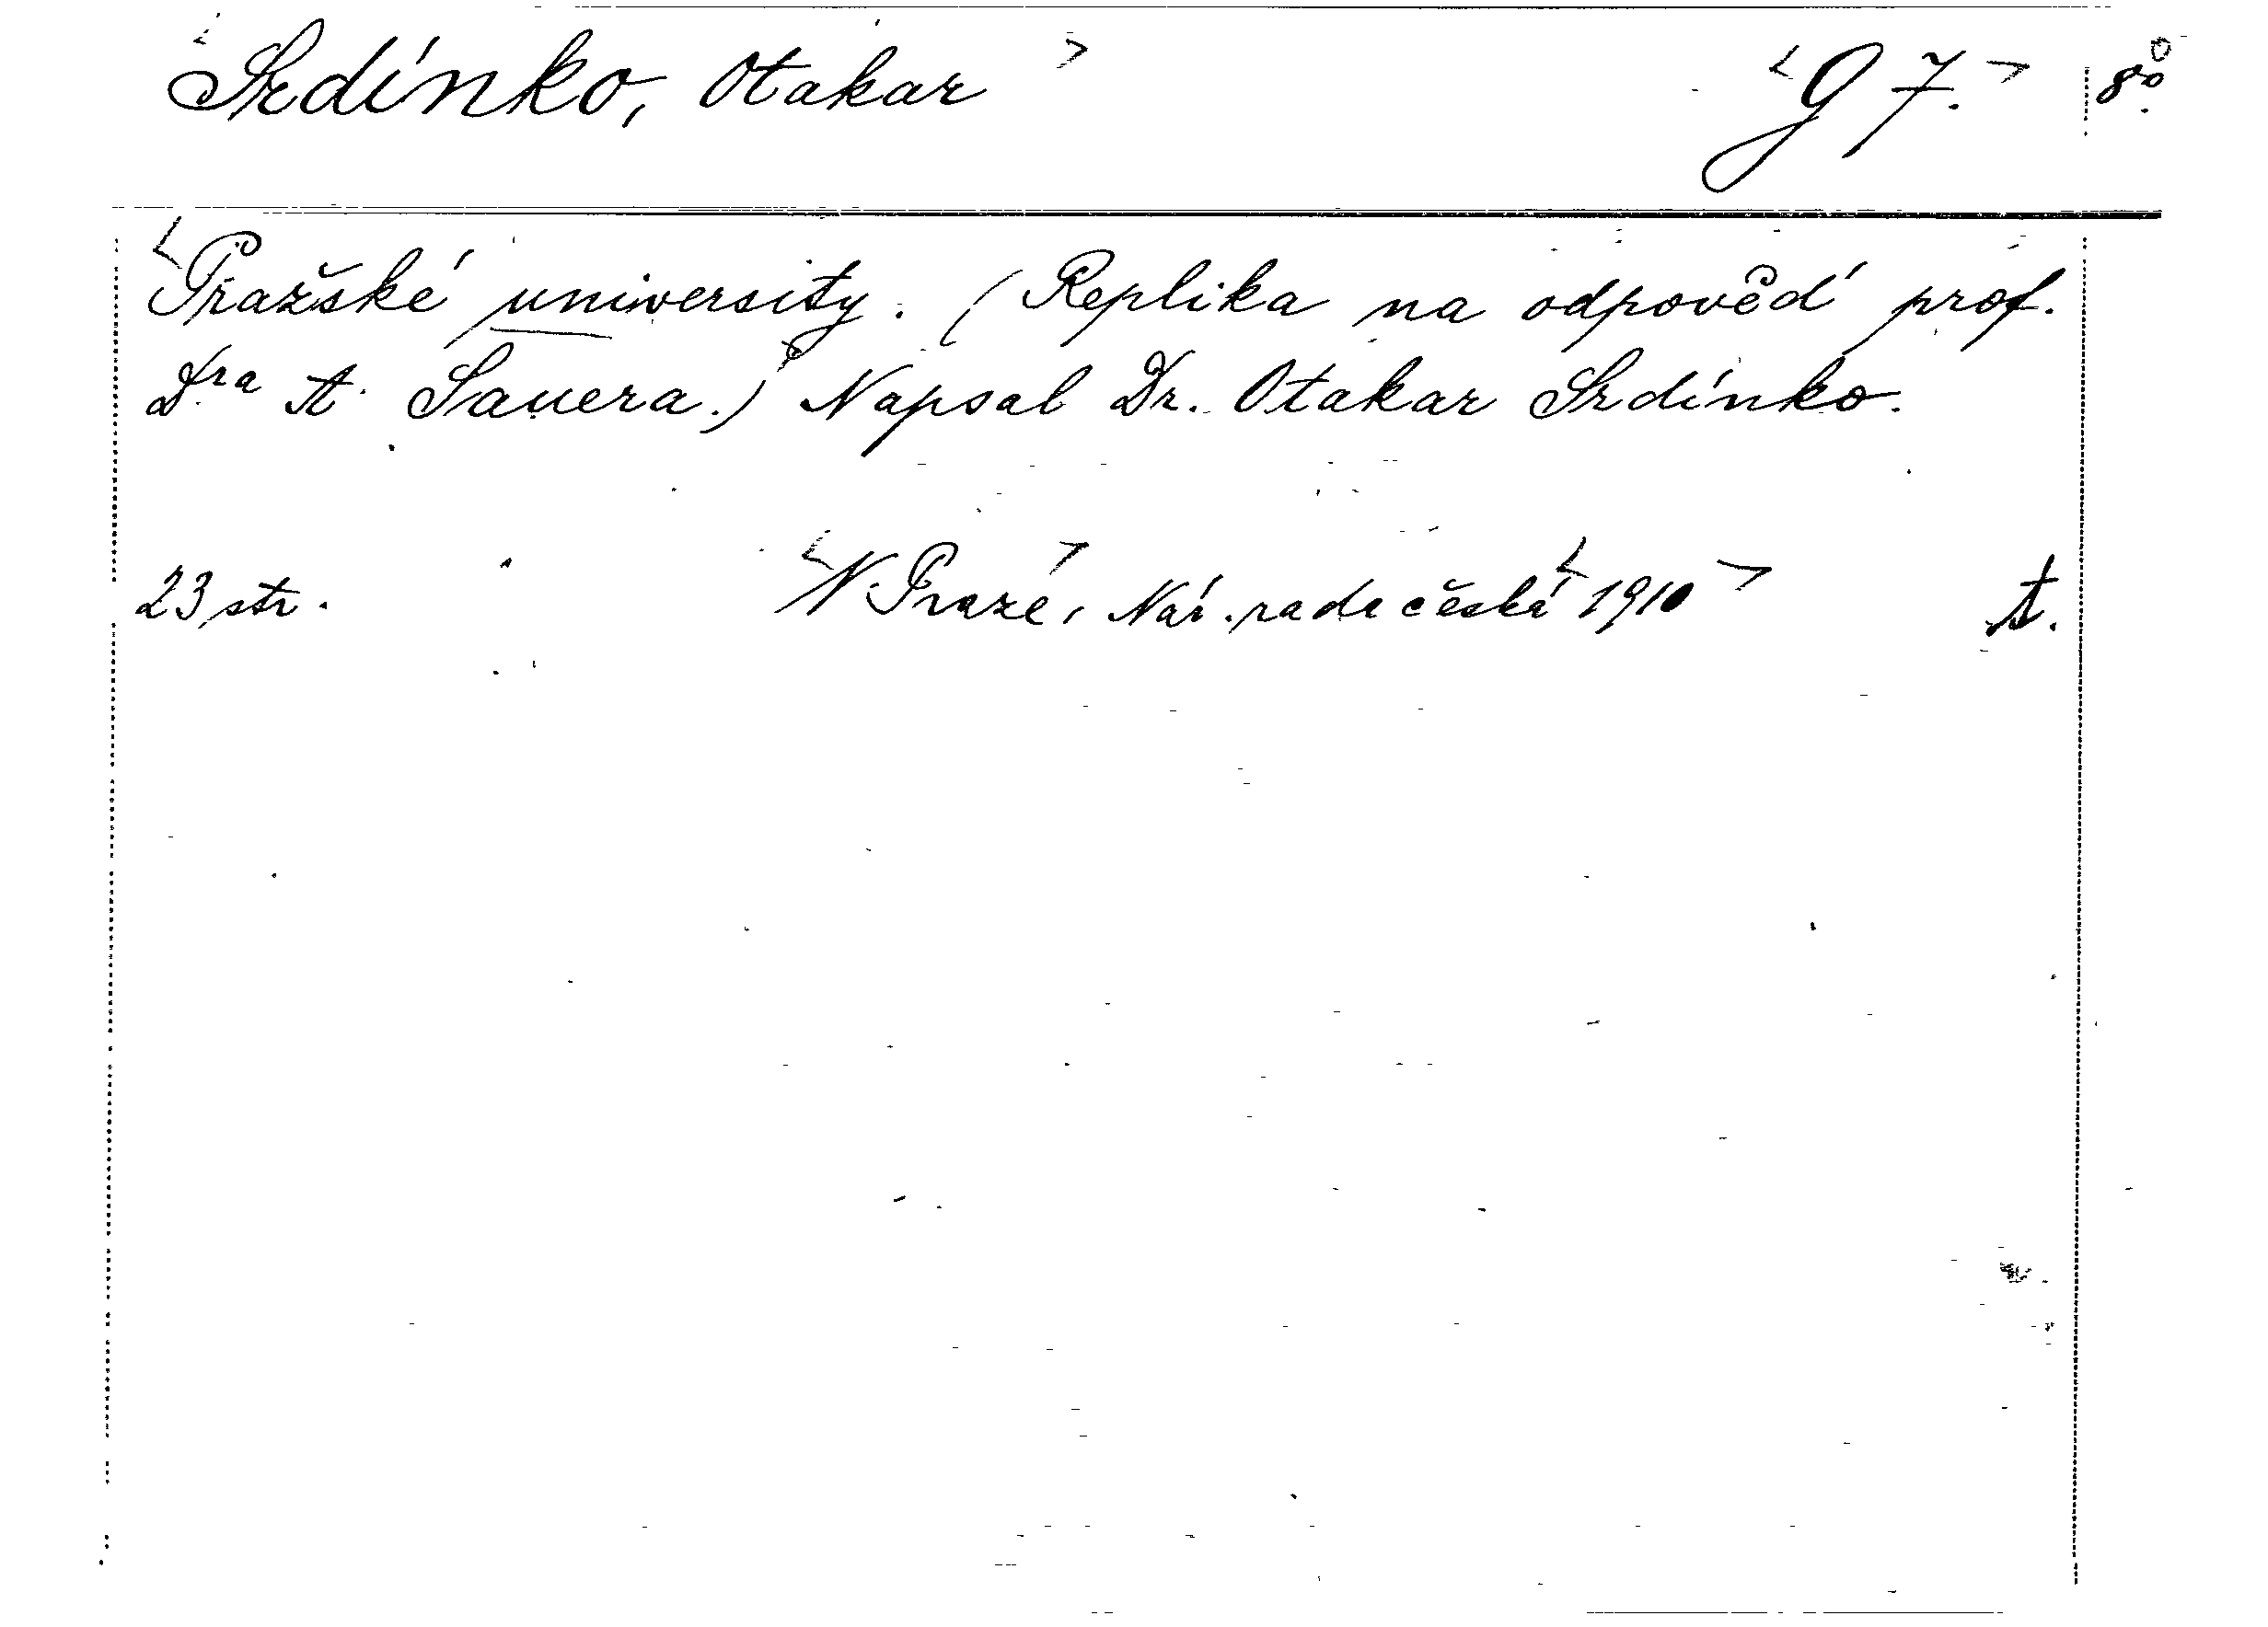 Srdínko, Otakar G 7. 8°
Pražské university. (Replika na odpověď prof.
Dra A. Sauera.) Napsal Dr. Otakar Srdínko.
23 str. V Praze, Nár. rada česká 1910 A.